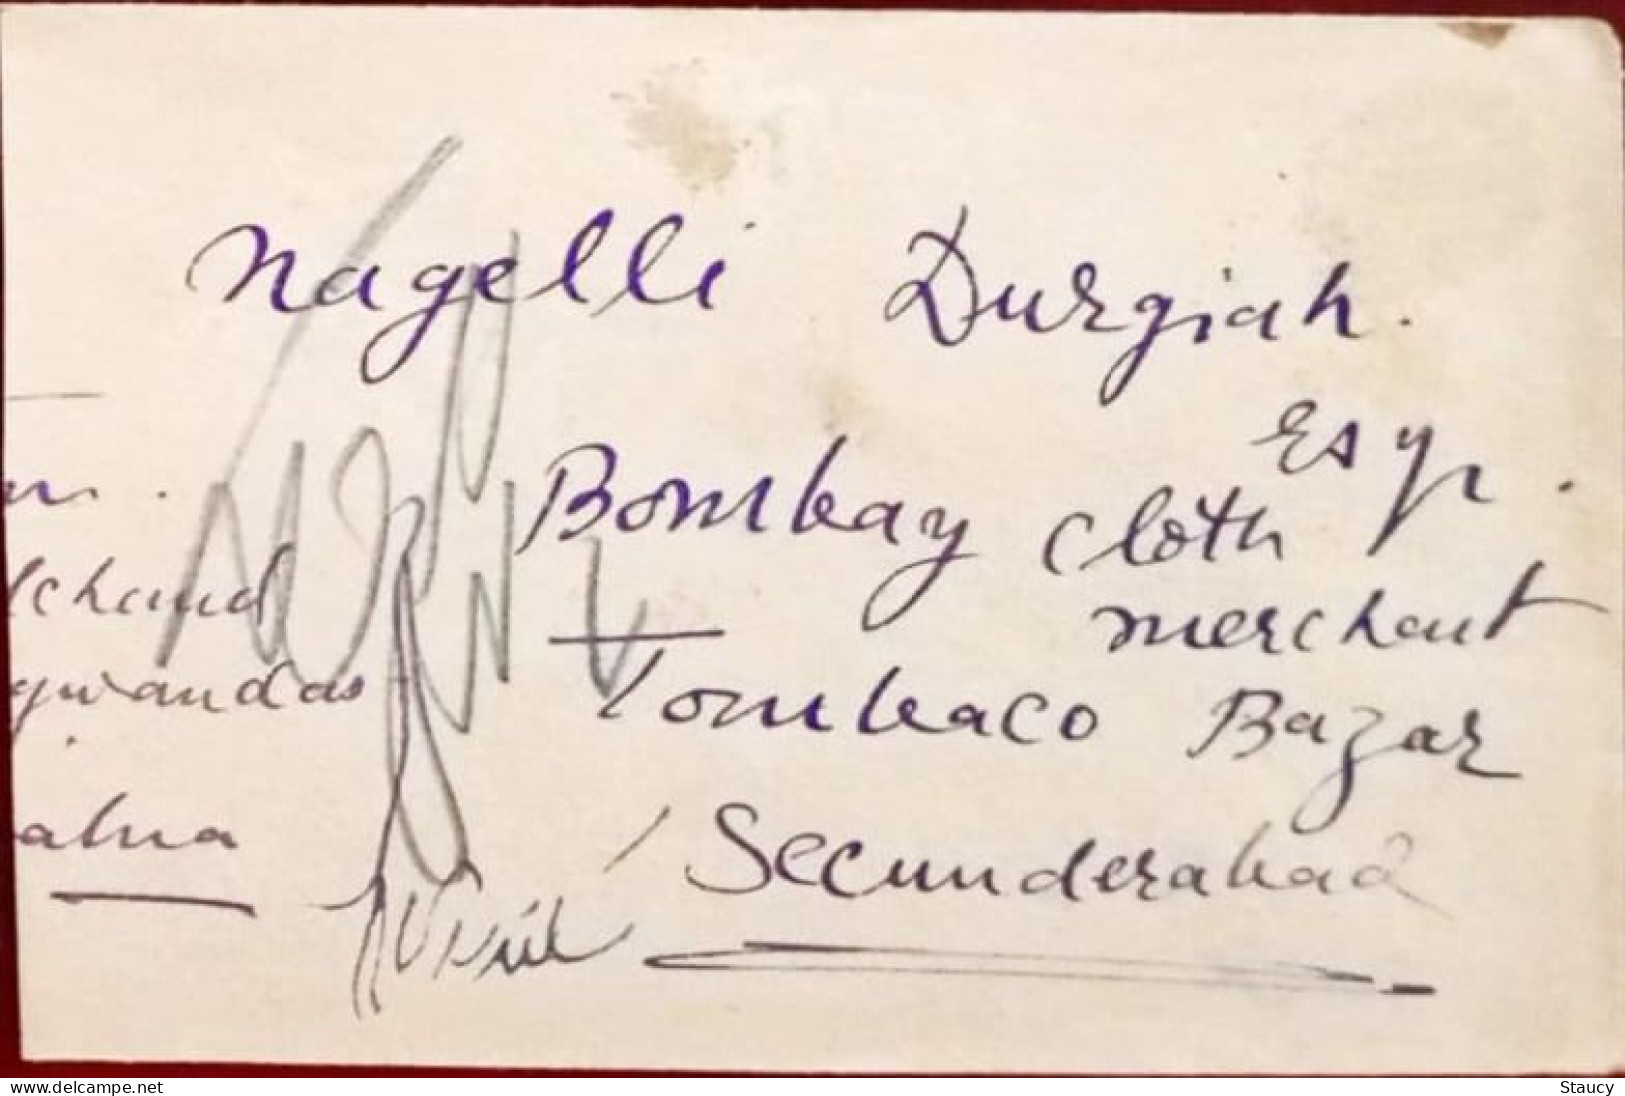 Nagelli Durgiah.
Esqr.
Bombay Cloth
merchant
Tombaco Bazar
Secunderabad
lchand
gwandas
alna
www.delcampe.net
Staucy